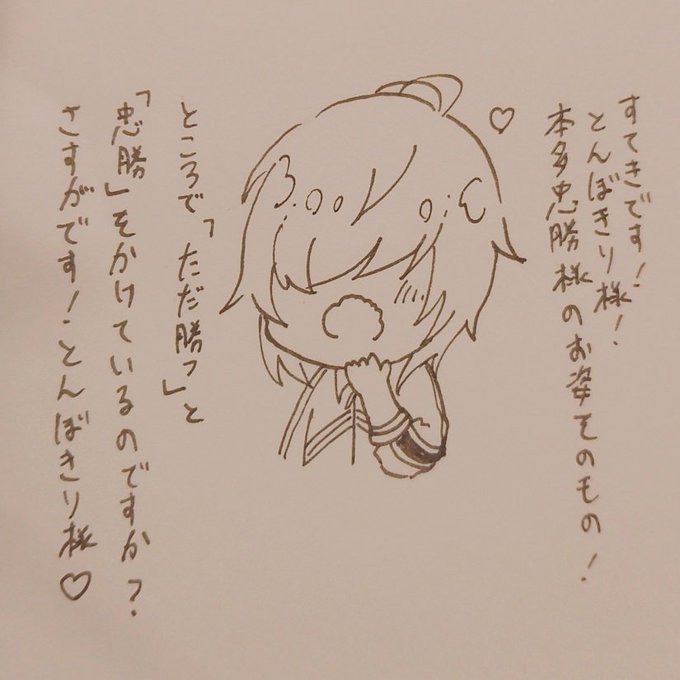 すてきです!
とんぼきり様!
本多忠勝様のお姿そのもの!
ところで、「ただ勝つ」と
「忠勝」をかけているのですか?
さすがです!とんぼきり様♡